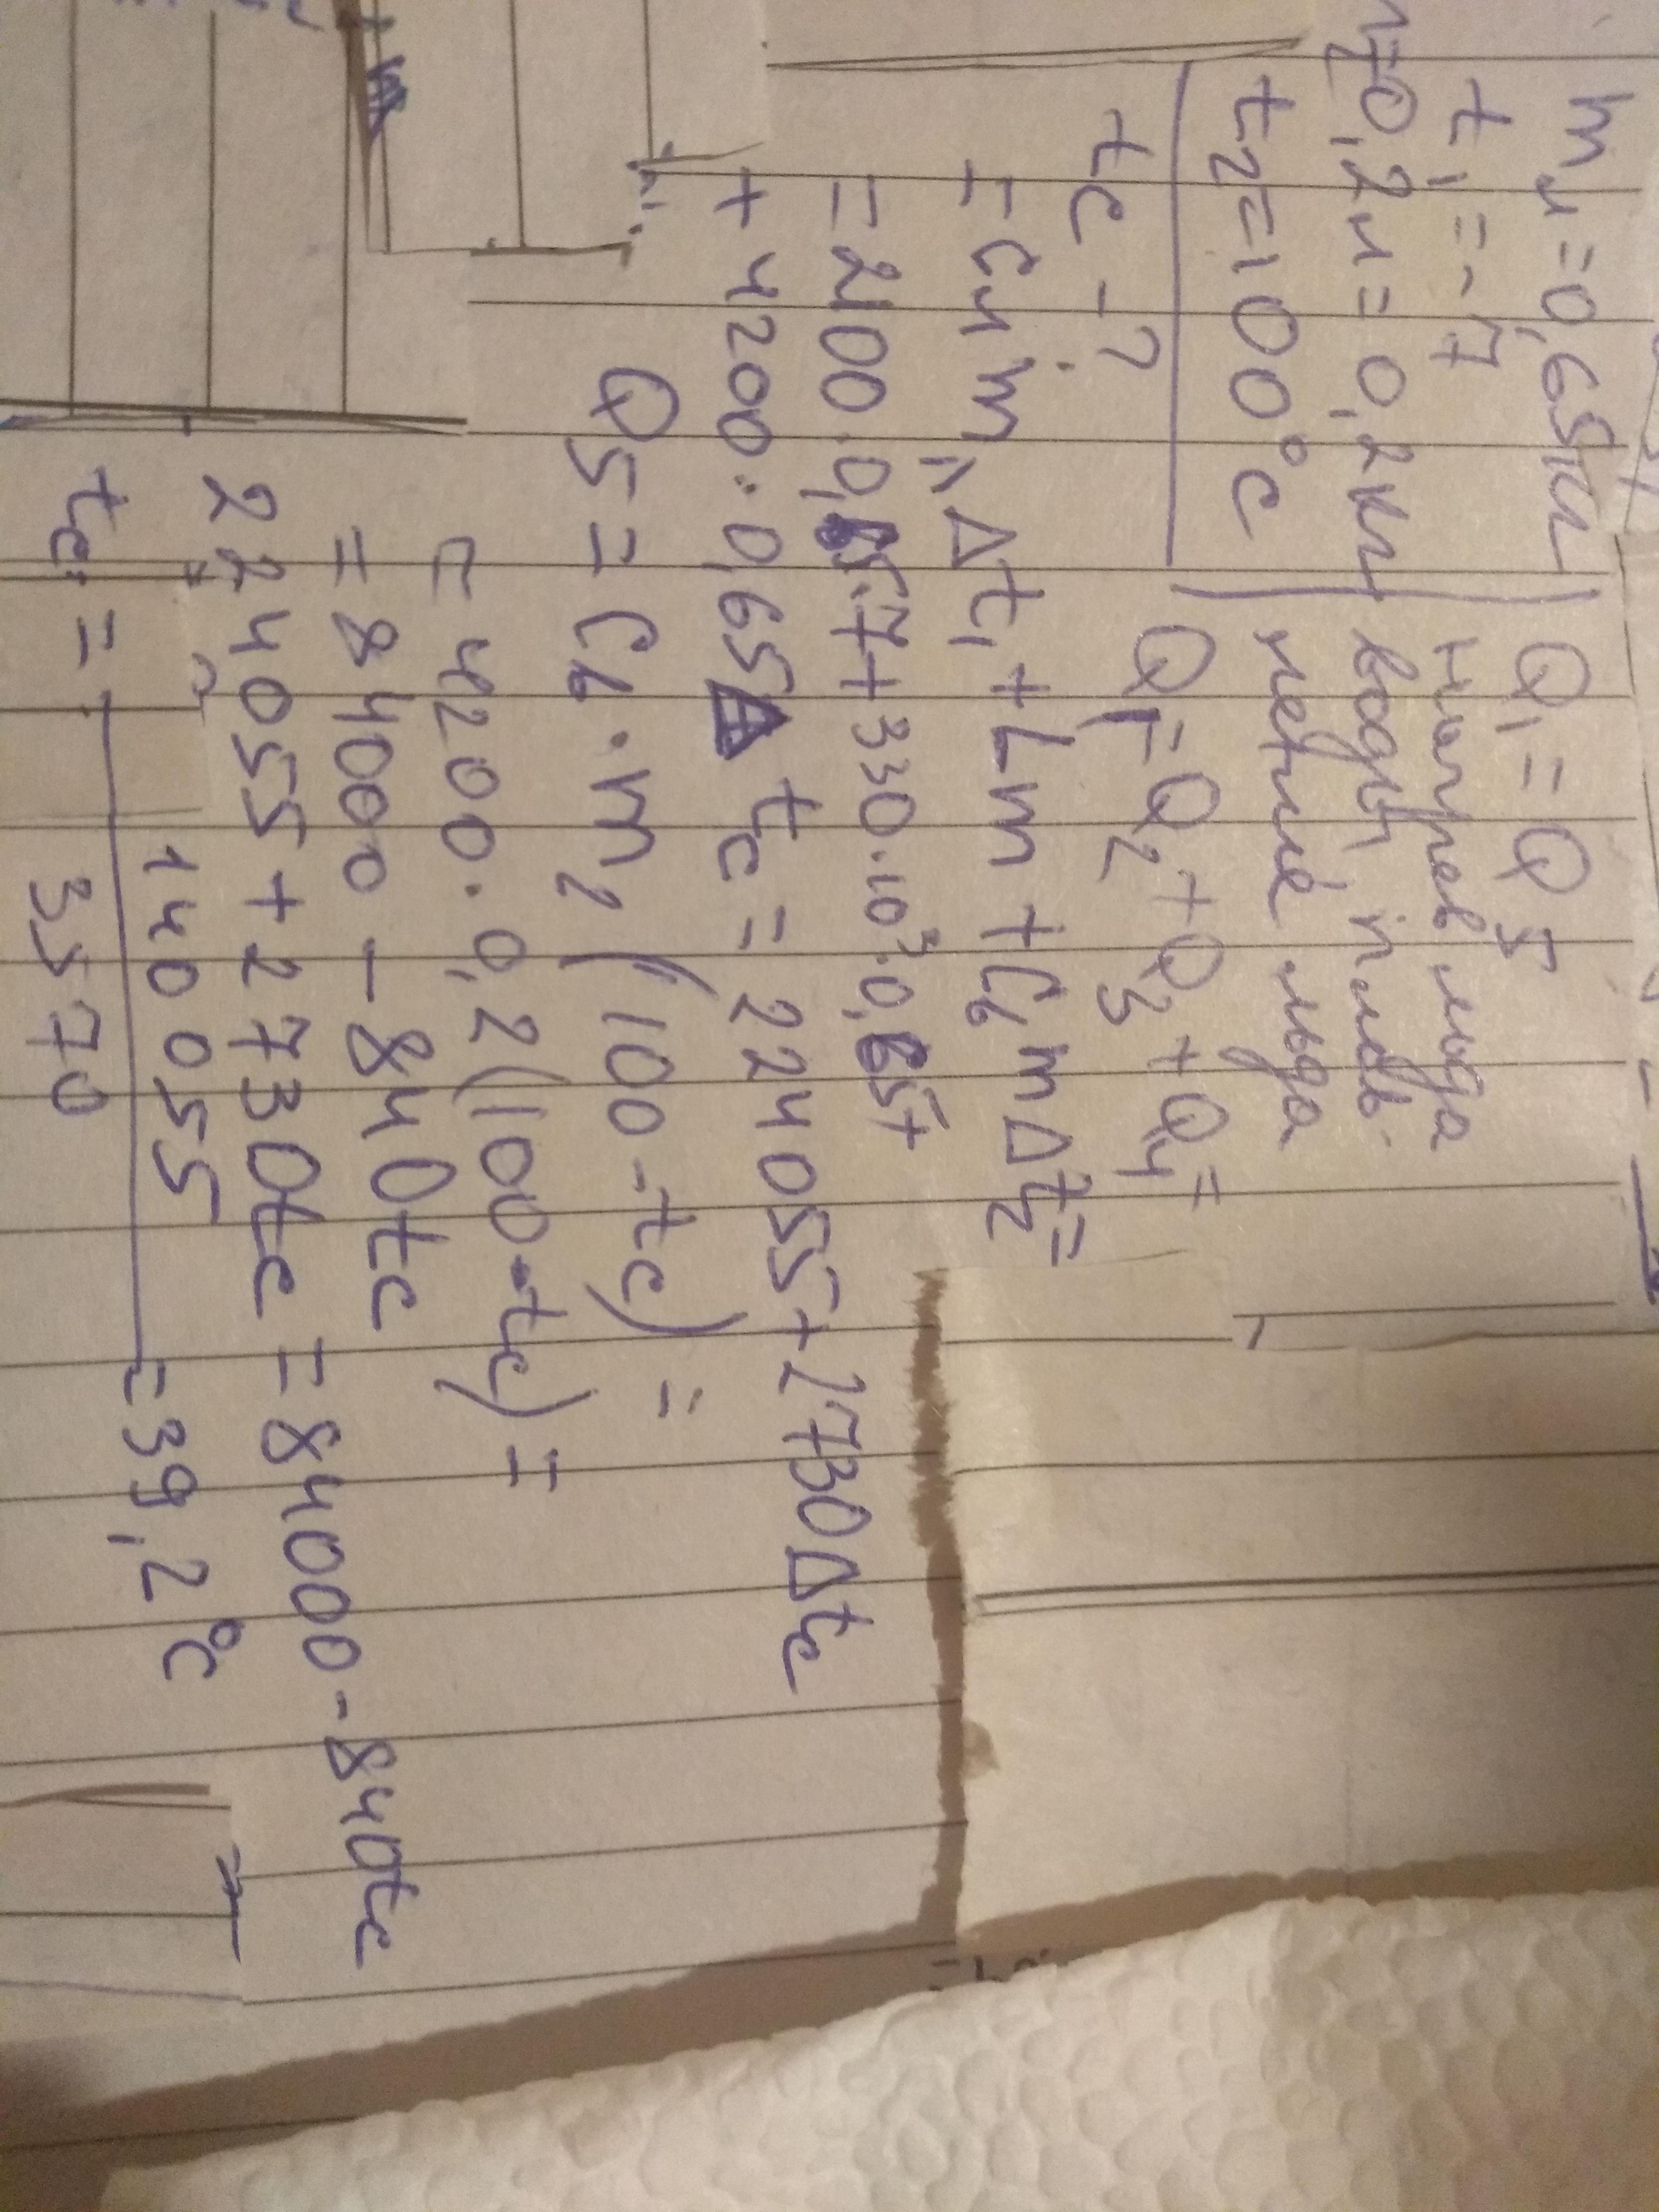 m₁ = 0,65кг
t₁ = -7
0,2л = 0,2кг
t₂ = 100°C
tc - ?
Q₁ = Q5
нагрев льда
воды, плав-
ление льда
Q₁ = Q₂ + Q₃ + Q₄ =
= cл m₁ Δt₁ + Lm + Cв mΔt₂ =
= 2100·0,65·7 + 330·10³·0,65 +
+ 4200·0,65 tc = 224055 + 2730Δtc
Q5 = Cв·m₂ (100 - tc) =
= 4200·0,2(100-tc) =
= 84000 - 840tc
224055 + 2730tc = 84000 - 840tc
tc = 140055 / 3570 = 39,2°C